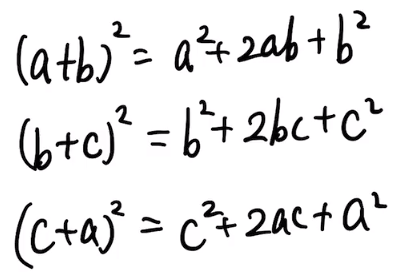 (a+b)² = a²+2ab+b²
(b+c)² = b²+2bc+c²
(c+a)² = c²+2ac+a²